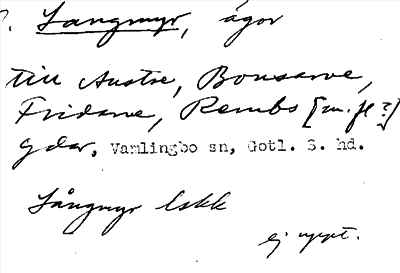 ?. Langmyr, ägor
till Austre, Bonsarve,
Fridarve, Rembs [m. fl ?]
gdar, Vamlingbo sn, Gotl. S. hd.
Långmyr lskk
ej uppt.